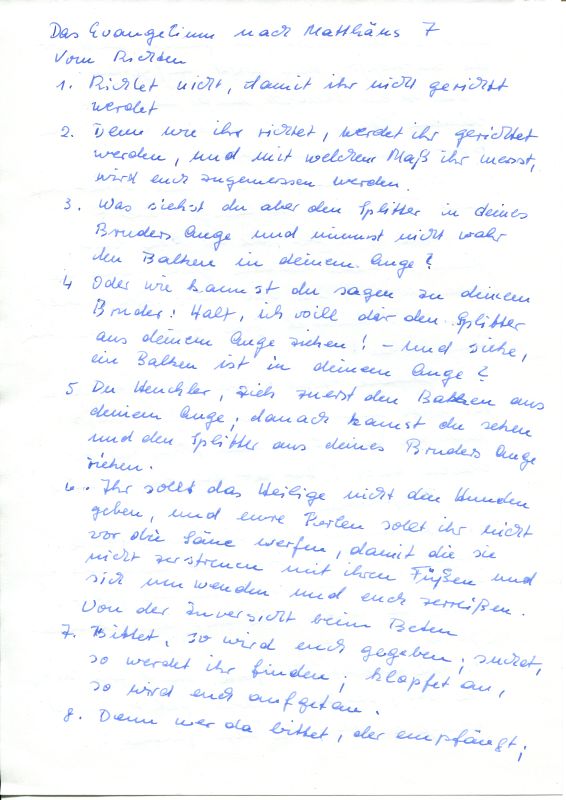 Das Evangelium nach Matthäus 7
Vom Richten
1. Richtet nicht, damit ihr nicht gerichtet
werdet
2. Denn wie ihr richtet, werdet ihr gerichtet
werden, und mit welchem Maß ihr messt,
wird euch zugemessen werden.
3. Was siehst du aber den Splitter in deines
Bruders Auge und nimmst nicht wahr
den Balken in deinem Auge?
4 Oder wie kannst du sagen zu deinem
Bruder: Halt, ich will dir den Splitter
aus deinem Auge ziehen! – und siehe,
ein Balken ist in deinem Auge?
5 Du Heuchler, zieh zuerst den Balken aus
deinem Auge; danach kannst du sehen
und den Splitter aus deines Bruders Auge
ziehen.
6. Ihr sollt das Heilige nicht den Hunden
geben, und eure Perlen sollt ihr nicht
vor die Säue werfen, damit die sie
nicht zerstreuen mit ihren Füßen und
sich umwenden und euch zerreißen.
Von der Zuversicht beim Beten
7. Bittet, so wird euch gegeben; suchet,
so werdet ihr finden; klopfet an,
so wird euch aufgetan.
8. Denn wer da bittet, der empfängt;